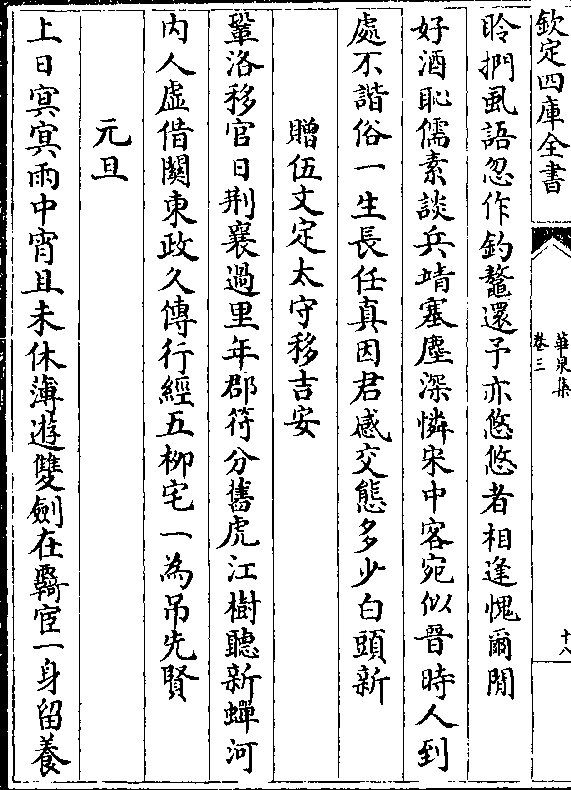 欽定四庫全書
華泉集
卷三
十八
聆捫虱語忽作釣鼇還予亦悠悠者相逢愧爾閒
好酒恥儒素談兵靖塞塵深憐宋中客宛似晉時人到
處不諧俗一生長任真因君感交態多少白頭新
贈伍文定太守移吉安
鞏洛移官日荆襄過里年郡符分舊虎江樹聽新蟬河
内人虛借關東政久傳行經五柳宅一為吊先賢
元旦
上日㝠㝠雨中宵且未休薄遊雙劍在覊宦一身留養